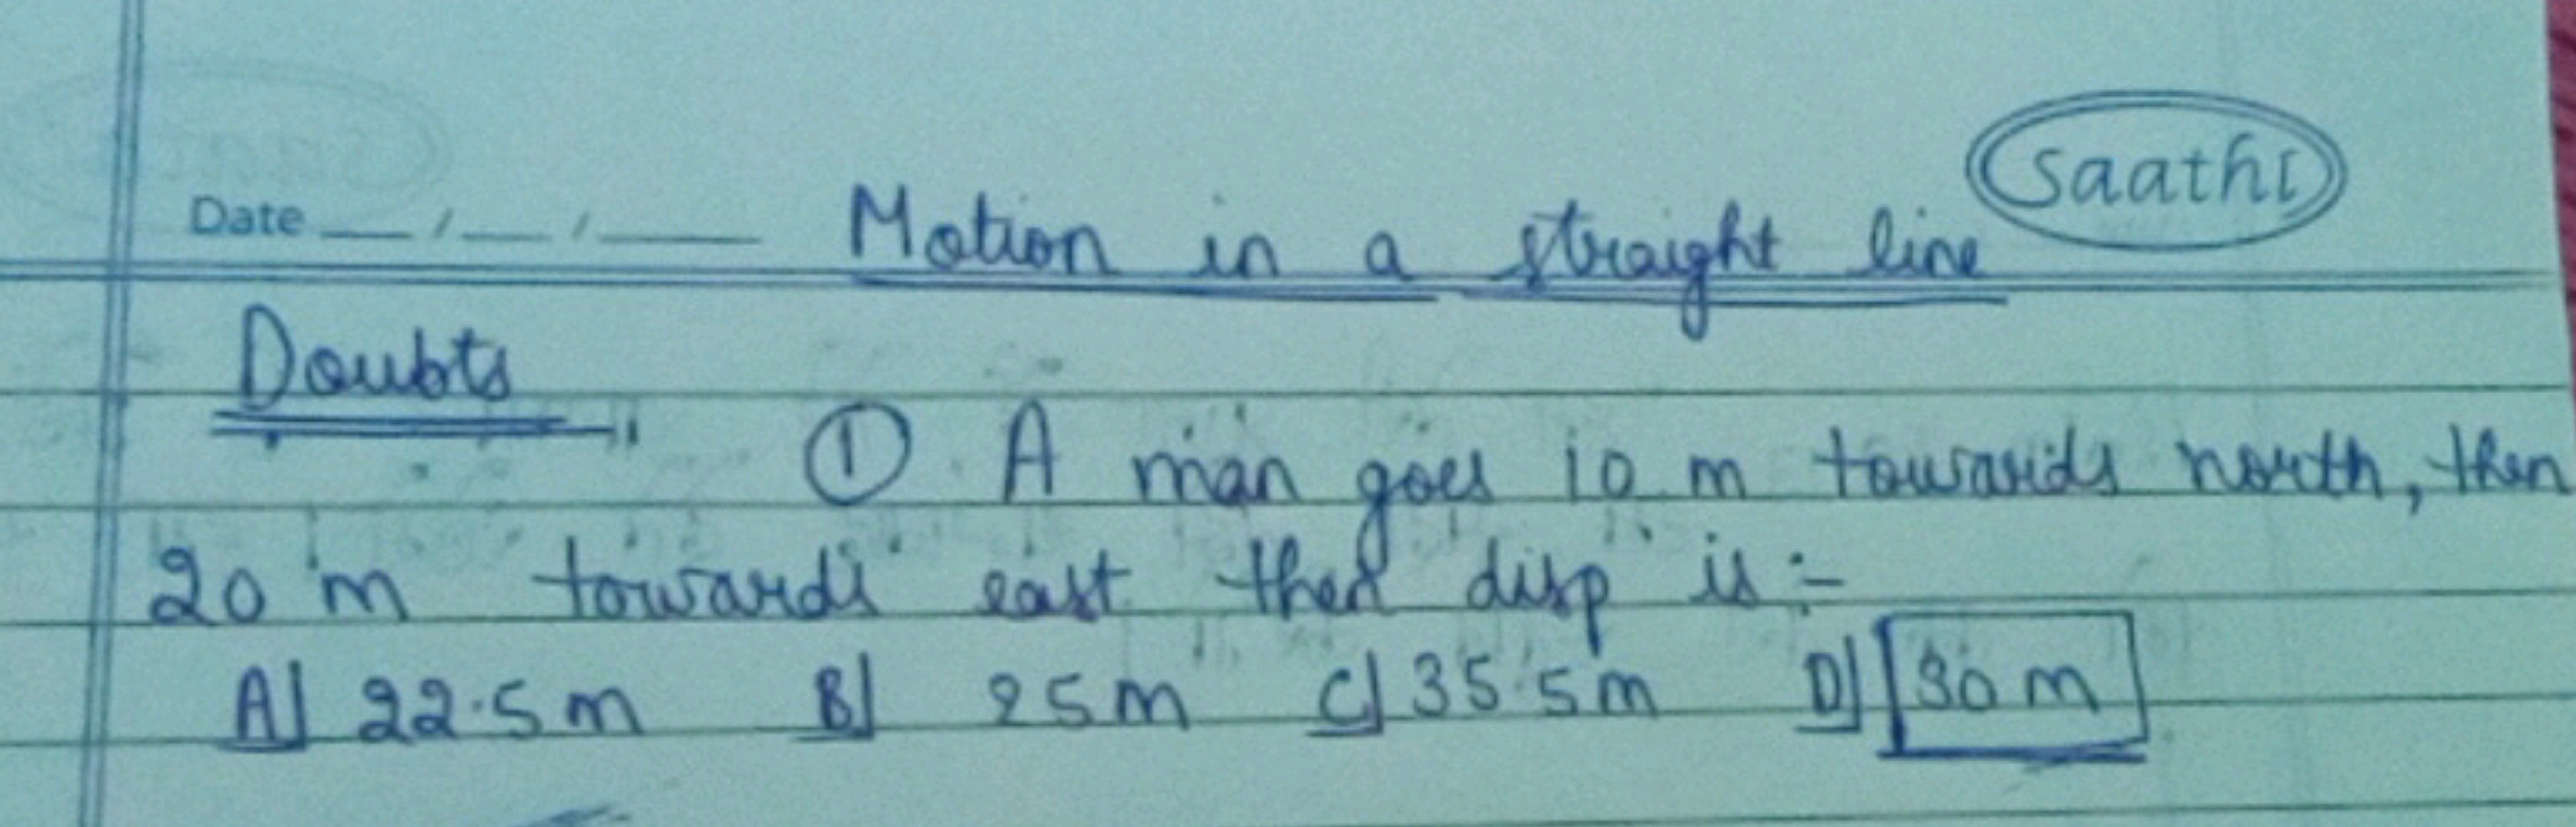 Saathi
Date __/__/____ Motion in a straight line
Doubts
① A man goes 10 m towards north, then
20 m towards east then disp is :-
A] 22.5 m B] 25 m C] 35.5 m D] 30 m